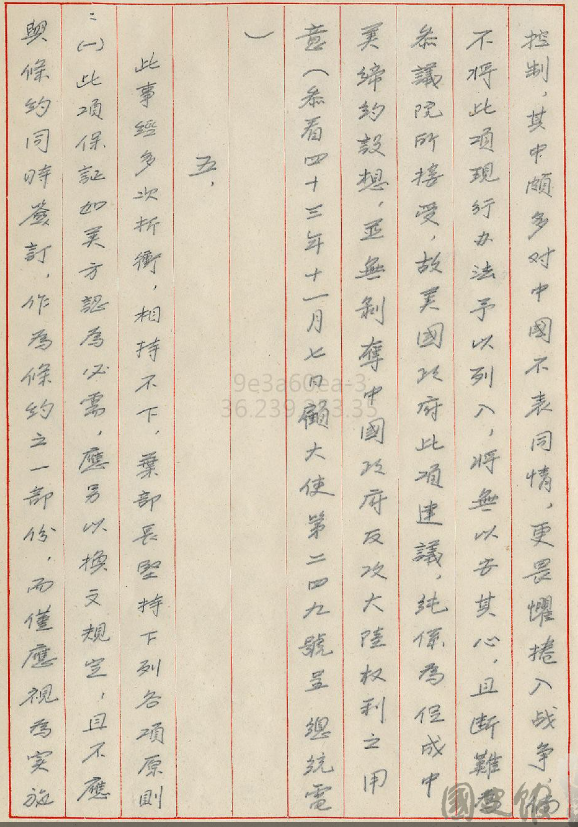 控制，其中頗多对中國不表同情，更畏懼捲入战争，而
不将此項現行办法予以列入，将無以安其心，且断難為
叅議院所接受，故美國政府此項建議，純係為促成中
美締約設想，並無剝奪中國政府反攻大陸权利之用
意（叅看四十三年十一月七日顧大使第二四九號呈總統電
）
五、
此事經多次折衝，相持不下，葉部長堅持下列各項原則
：㈠此項保証如美方認為必需，應另以換文規定，且不應
與條約同時簽訂，作為條約之一部份，而僅應視為实施
9e3a60ea-3
36.239.233.35
國史館